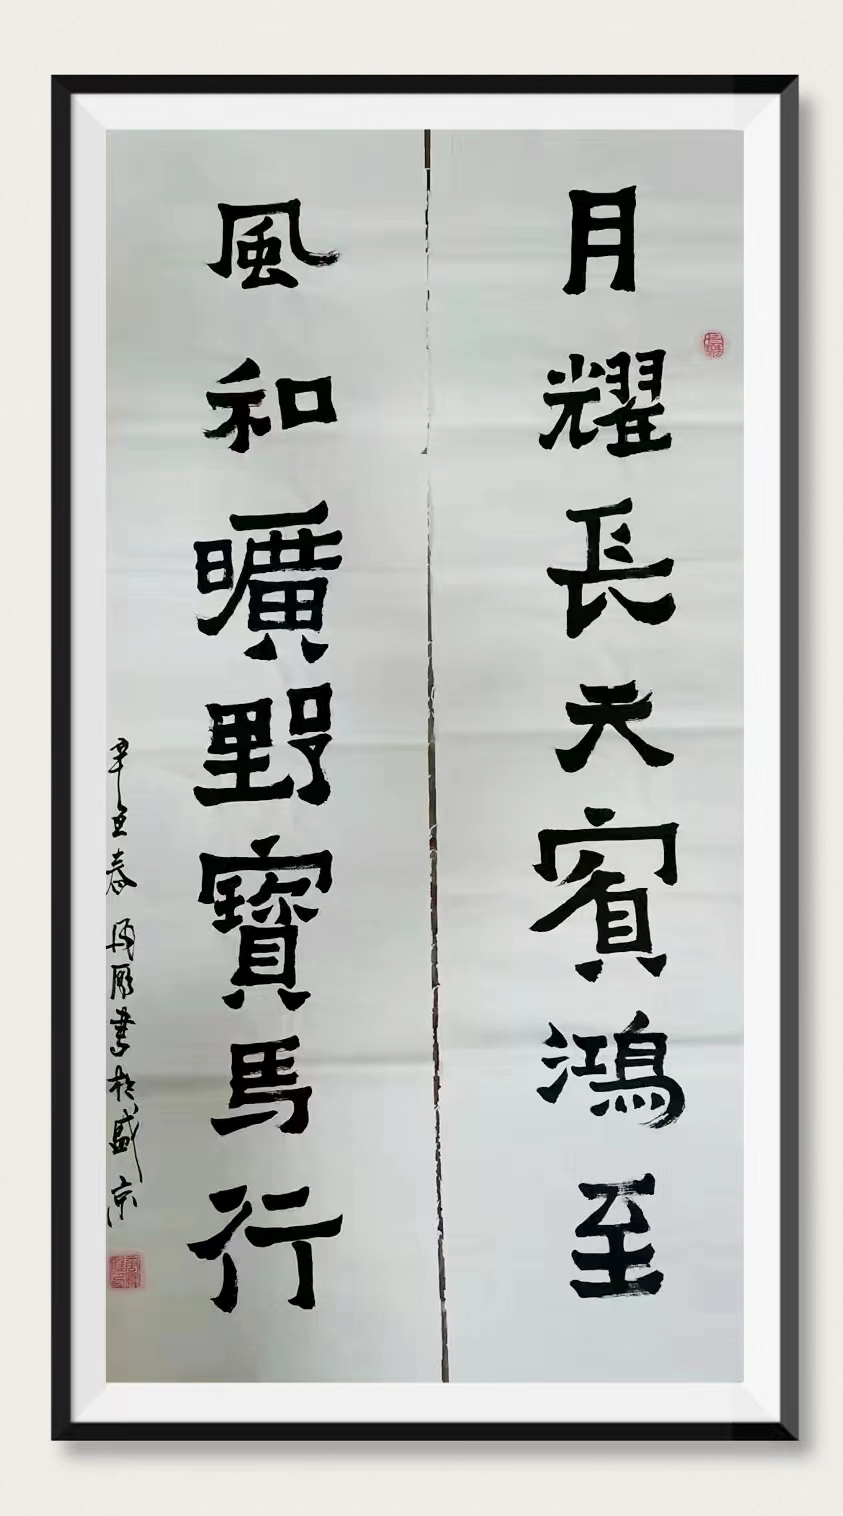 月耀長天賓鴻至
風和曠野寶馬行
辛丑春 書於盛京